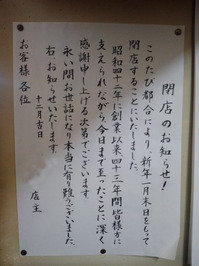 閉店のお知らせ!
このたび都合により、新年一月末日をもって
閉店することにいたしました。
昭和四十二年に創業以来四十三年間皆様方に
支えられながら今日まで至ったことに深く
感謝申し上げる次第でございます。
永い間お世話になり本当に有り難うございました。
右お知らせいたします。
十二月吉日
店主
お客様各位